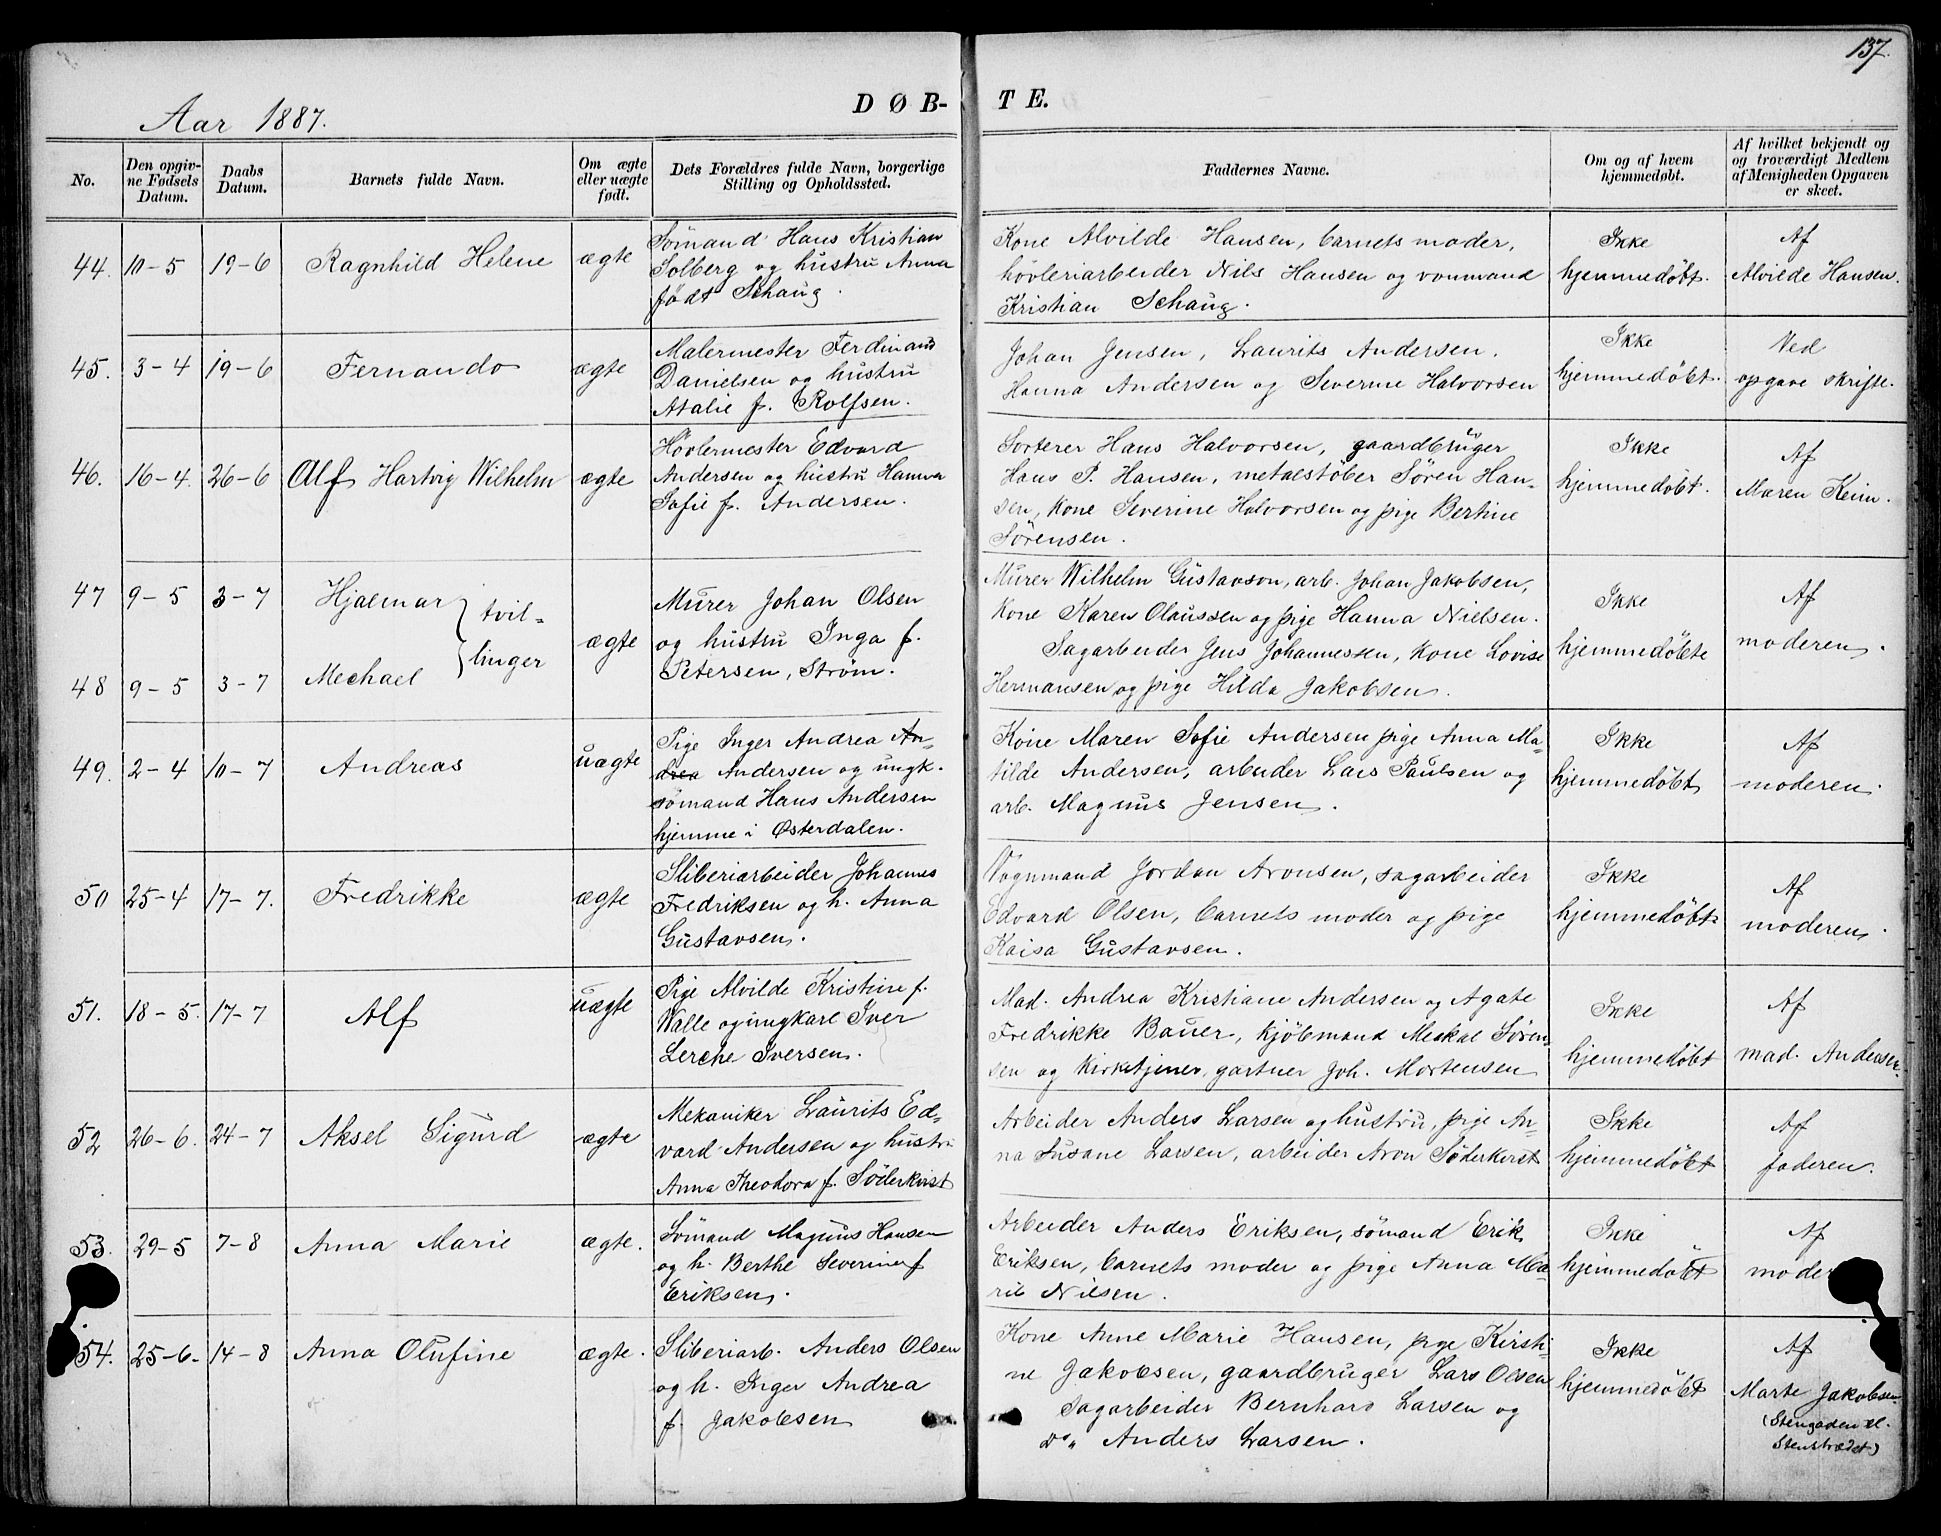 137.
Aar 1887.
DØB-
TE.
No.
Den opgiv-
ne Fødsels
Datum.
Daabs
Datum.
Barnets fulde Navn.
Om ægte
eller uægte
født.
Dets Forældres fulde Navn, borgerlige
Stilling og Opholdssted.
Faddernes Navne.
Om og af hvem
hjemmedøbt.
Af hvilket bekjendt og
og troværdigt Medlem
af Menigheden Opgaven
er skeet.
44. 10-5 19-6 Ragnhild Helene ægte
Sömand Hans Kristian
Solberg og hustru Anna
født Schaug.
Kone Alvilde Hansen, barnets moder,
hövleriarbeider Nils Hansen og vonmand
Kristian Schaug.
Ikke
hjemmedøbt.
Af
Alvilde Hansen.
45. 3-4 19-6 Fernando ægte
Malermester Ferdinand
Danielsen og hustru
Atalie f. Rolfsen.
Johan Jensen, Laurits Andersen.
Hanna Andersen og Severine Halvorsen
Ikke
hjemmedøbt.
Ved
opgave skrifte.
46. 16-4. 26-6 Alf Hartvig Wilhelm ægte
Hövlermester Edvard
Andersen og hustru Hanna
Sofie f. Andersen.
Sorterer Hans Halvorsen, gaardbruger
Hans P. Hansen, metalstöber Sören Han-
sen, kone Severine Halvorsen og pige Bertine
Sörensen.
Ikke
hjemmedøbt.
Af
Maren Keim.
47 9-5 3-7 Hjalmar
48 9-5 3-7 Mechael
tvil-
linger
ægte
Murer Johan Olsen
og hustru Inga f.
Petersen, Ström.
Murer Wilhelm Gustavson, arb. Johan Jakobsen,
kone Karen Olaussen og pige Hanna Nielsen.
Sagarbeider Jens Johannessen, kone Lovise
Hermansen og pige Hilda Jakobsen.
Ikke
hjemmedøbte
Af
moderen.
49. 2-4 10-7 Andreas uægte
Pige Inger Andrea An-
drea Andersen og ungk.
sömand Hans Andersen
hjemme i Østerdalen.
Kone Maren Sofie Andersen pige Anna Ma-
tilde Andersen, arbeider Lars Paulsen og
arb. Magnus Jensen.
Ikke
hjemmedøbt
Af
moderen.
50 25-4 17-7. Fredrikke ægte
Sliberiarbeider Johannes
Fredriksen og h. Anna
Gustavsen.
Vognmand Jordan Aronsen, sagarbeider
Edvard Olsen, barnets moder og pige
Kaisa Gustavsen.
Ikke
hjemmedøbt
Af
moderen.
51. 18-5. 17-7 Alf uægte
Pige Alvilde Kristine f.
Walle og ungkarl Iver
Lerche Iversen.
Mad. Andrea Kristiane Andersen og Agate
Fredrikke Bauer, kjöbmand Meckal Sören-
sen og kirketjener, gartner Joh. Mortensen
Ikke
hjemmedøbt
Af
mad. Andersen.
52 26-6. 24-7 Aksel Sigurd ægte
Mekaniker Laurits Ed-
vard Andersen og hustru
Anna Theodora f. Söderkvist
Arbeider Anders Larsen og hustru, pige An-
na Susane Larsen, arbeider Aron Söderkvist
Ikke
hjemmedøbt
Af
faderen.
53. 29-5 7-8 Anna Marie ægte.
Sömand Magnus Hansen
og h. Berthe Severine f
Eriksen.
Arbeider Anders Eriksen, sömand Erik
Eriksen, barnets moder og pige Anna Ma-
rie Nilsen.
Ikke
hjemmedøbt
Af
moder
54. 25-6- 14-8 Anna Olufine ægte.
Sliberiarb. Anders Olsen
og h. Inger Andrea
f. Jakobsen
Kone Anne Marie Hansen, pige Kirsti-
ne Jakobsen, gaardbruger Lars Olsen
Sagarbeider Bernhard Larsen og
Do. Anders Larsen.
Ikke
hjemmedøbt
Af
Marte Jakobsen
(Stengaden el.
Stenstrædet)